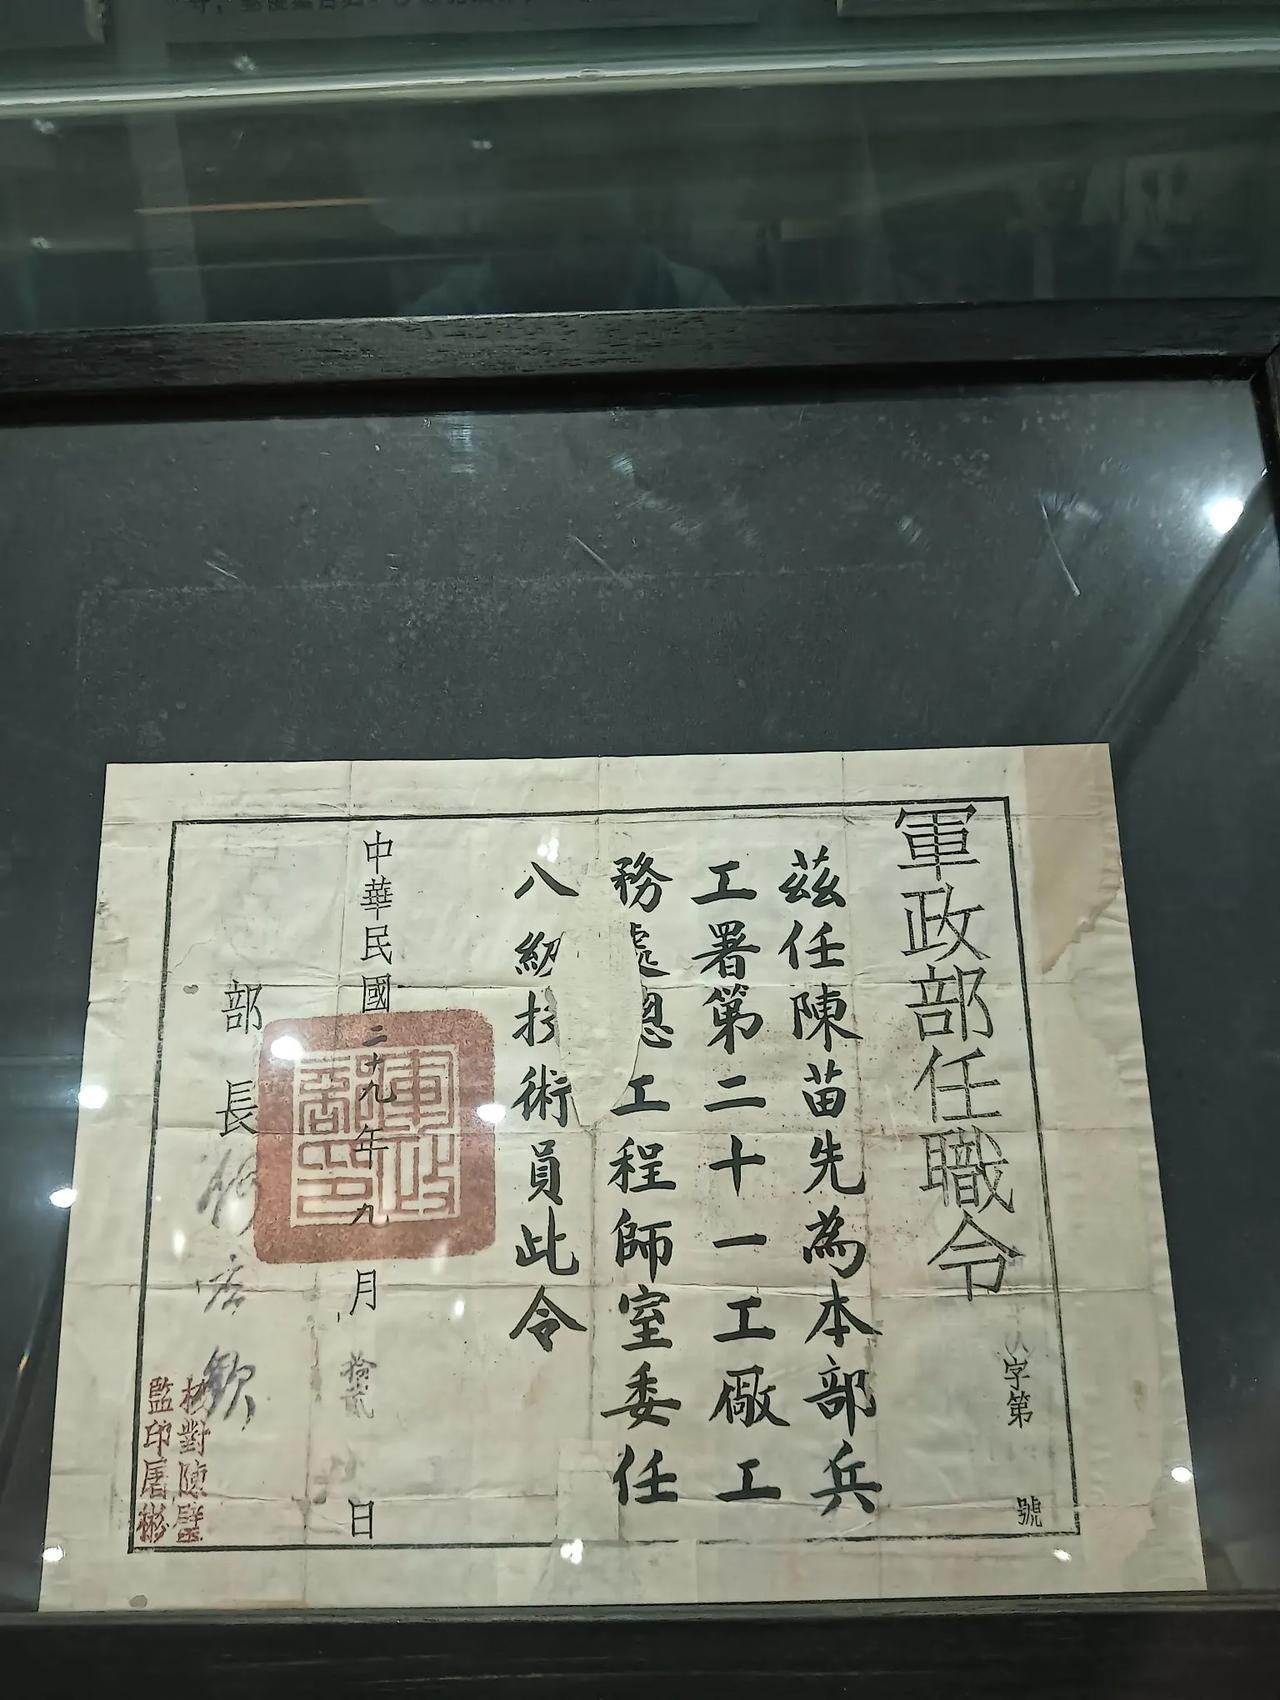 軍政部任職令
字第
號
茲任陳苗先為本部兵
工署第二十一工廠工
務處總工程師室委任
八級技術員此令
中華民國二十九年九月拾貳日
部長何应欽
軍政部印
校對陳
監印屠彬